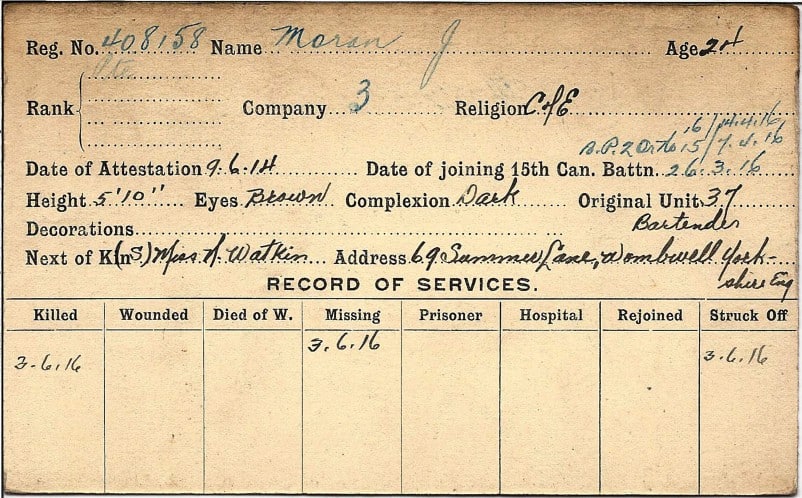 Reg. No. 408158 Name Moran J Age 24
Pte
Rank Company 3 Religion C of E
B.P.2 Orts 16/14.4.16
15/7.4.16
Date of Attestation 9.6.14 Date of joining 15th Can. Battn. 26.3.16
Height 5'10" Eyes Brown Complexion Dark Original Unit 37
Decorations Bartender
Next of Kin (S) Miss N. Watkin Address 69 Summer Lane, Wombwell York-
shire Eng
RECORD OF SERVICES.
Killed Wounded Died of W. Missing Prisoner Hospital Rejoined Struck Off
3.6.16 3.6.16 3.6.16